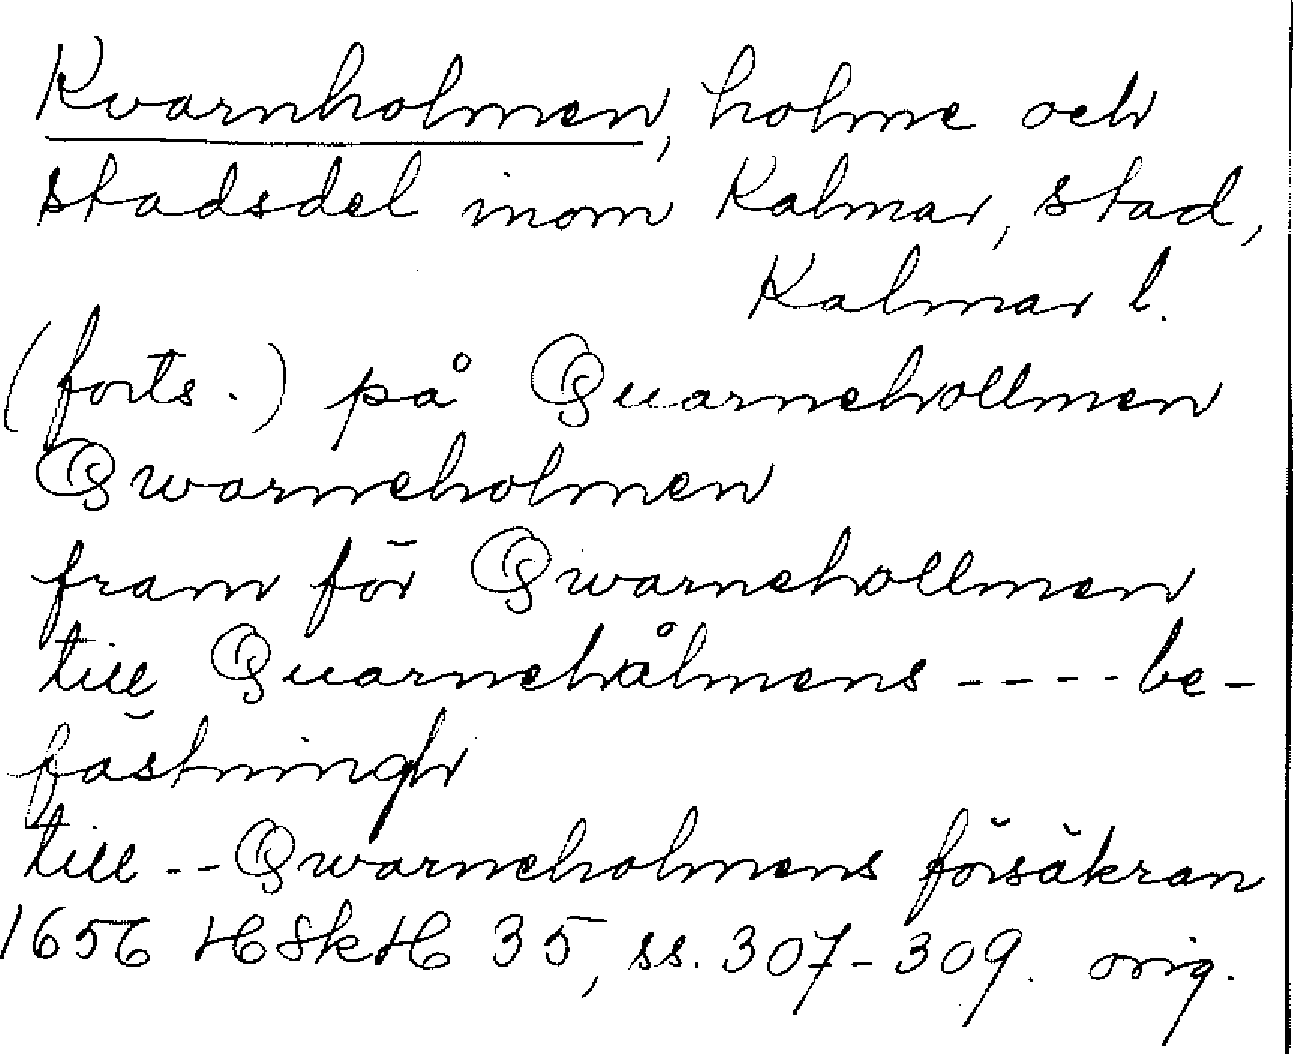 Kvarnholmen, holme och
stadsdel inom Kalmar, stad,
Kalmar l.
(forts.) på Quarnehollmen
Qwarneholmen
fram för Qwarnehollmen
till Quarnehålmens ---- be-
fästningh
till -- Qwarneholmens försäkran
1656 HSkH 35, ss. 307-309. orig.